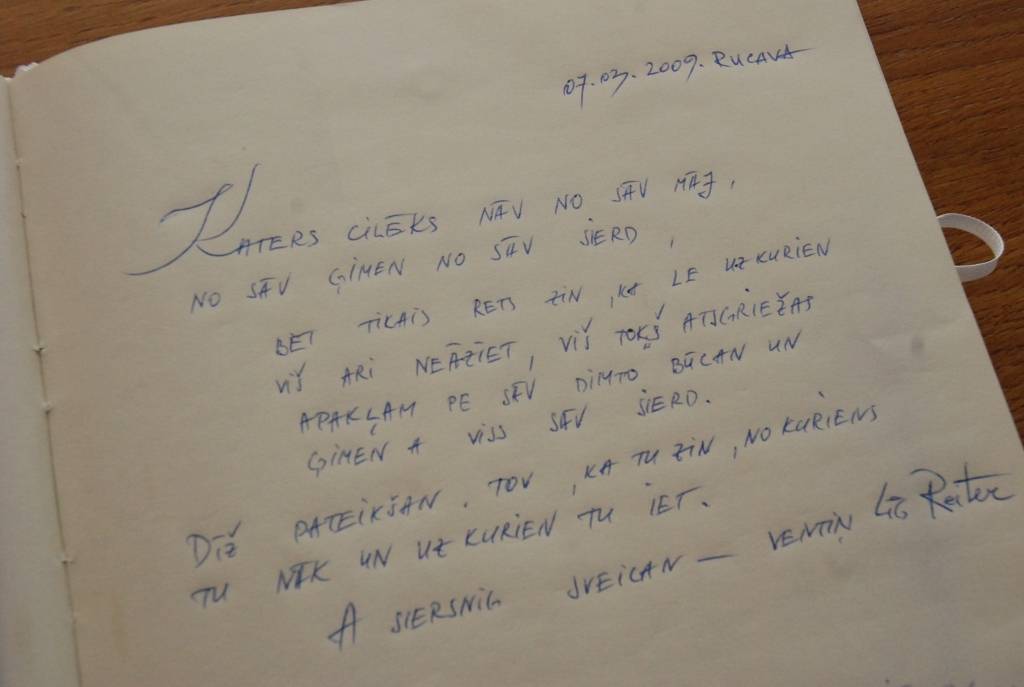 07.03.2009. RUCAVA
KATERS CILĒKS NĀV NO SĀV MĀJ,
NO SĀV ĢIMEN NO SĀV SIERD,
BET TIKAIS RETS ZIN, KA LE UZ KURIEN
VIŠ ARI NEĀZIET, VIŠ TOKŠ ATSGRIEŽAS
APAKĻAM PE SĀV DIMTO BŪCAN UN
ĢIMEN A VISS SĀV SIERD.
DĪŽ PATEIKŠAN. TOV, KA TU ZIN, NO KURIENS
TU NĀK UN UZ KURIEN TU IET.
A SIERSNIG SVEICAN — VENTIŅ Reiter